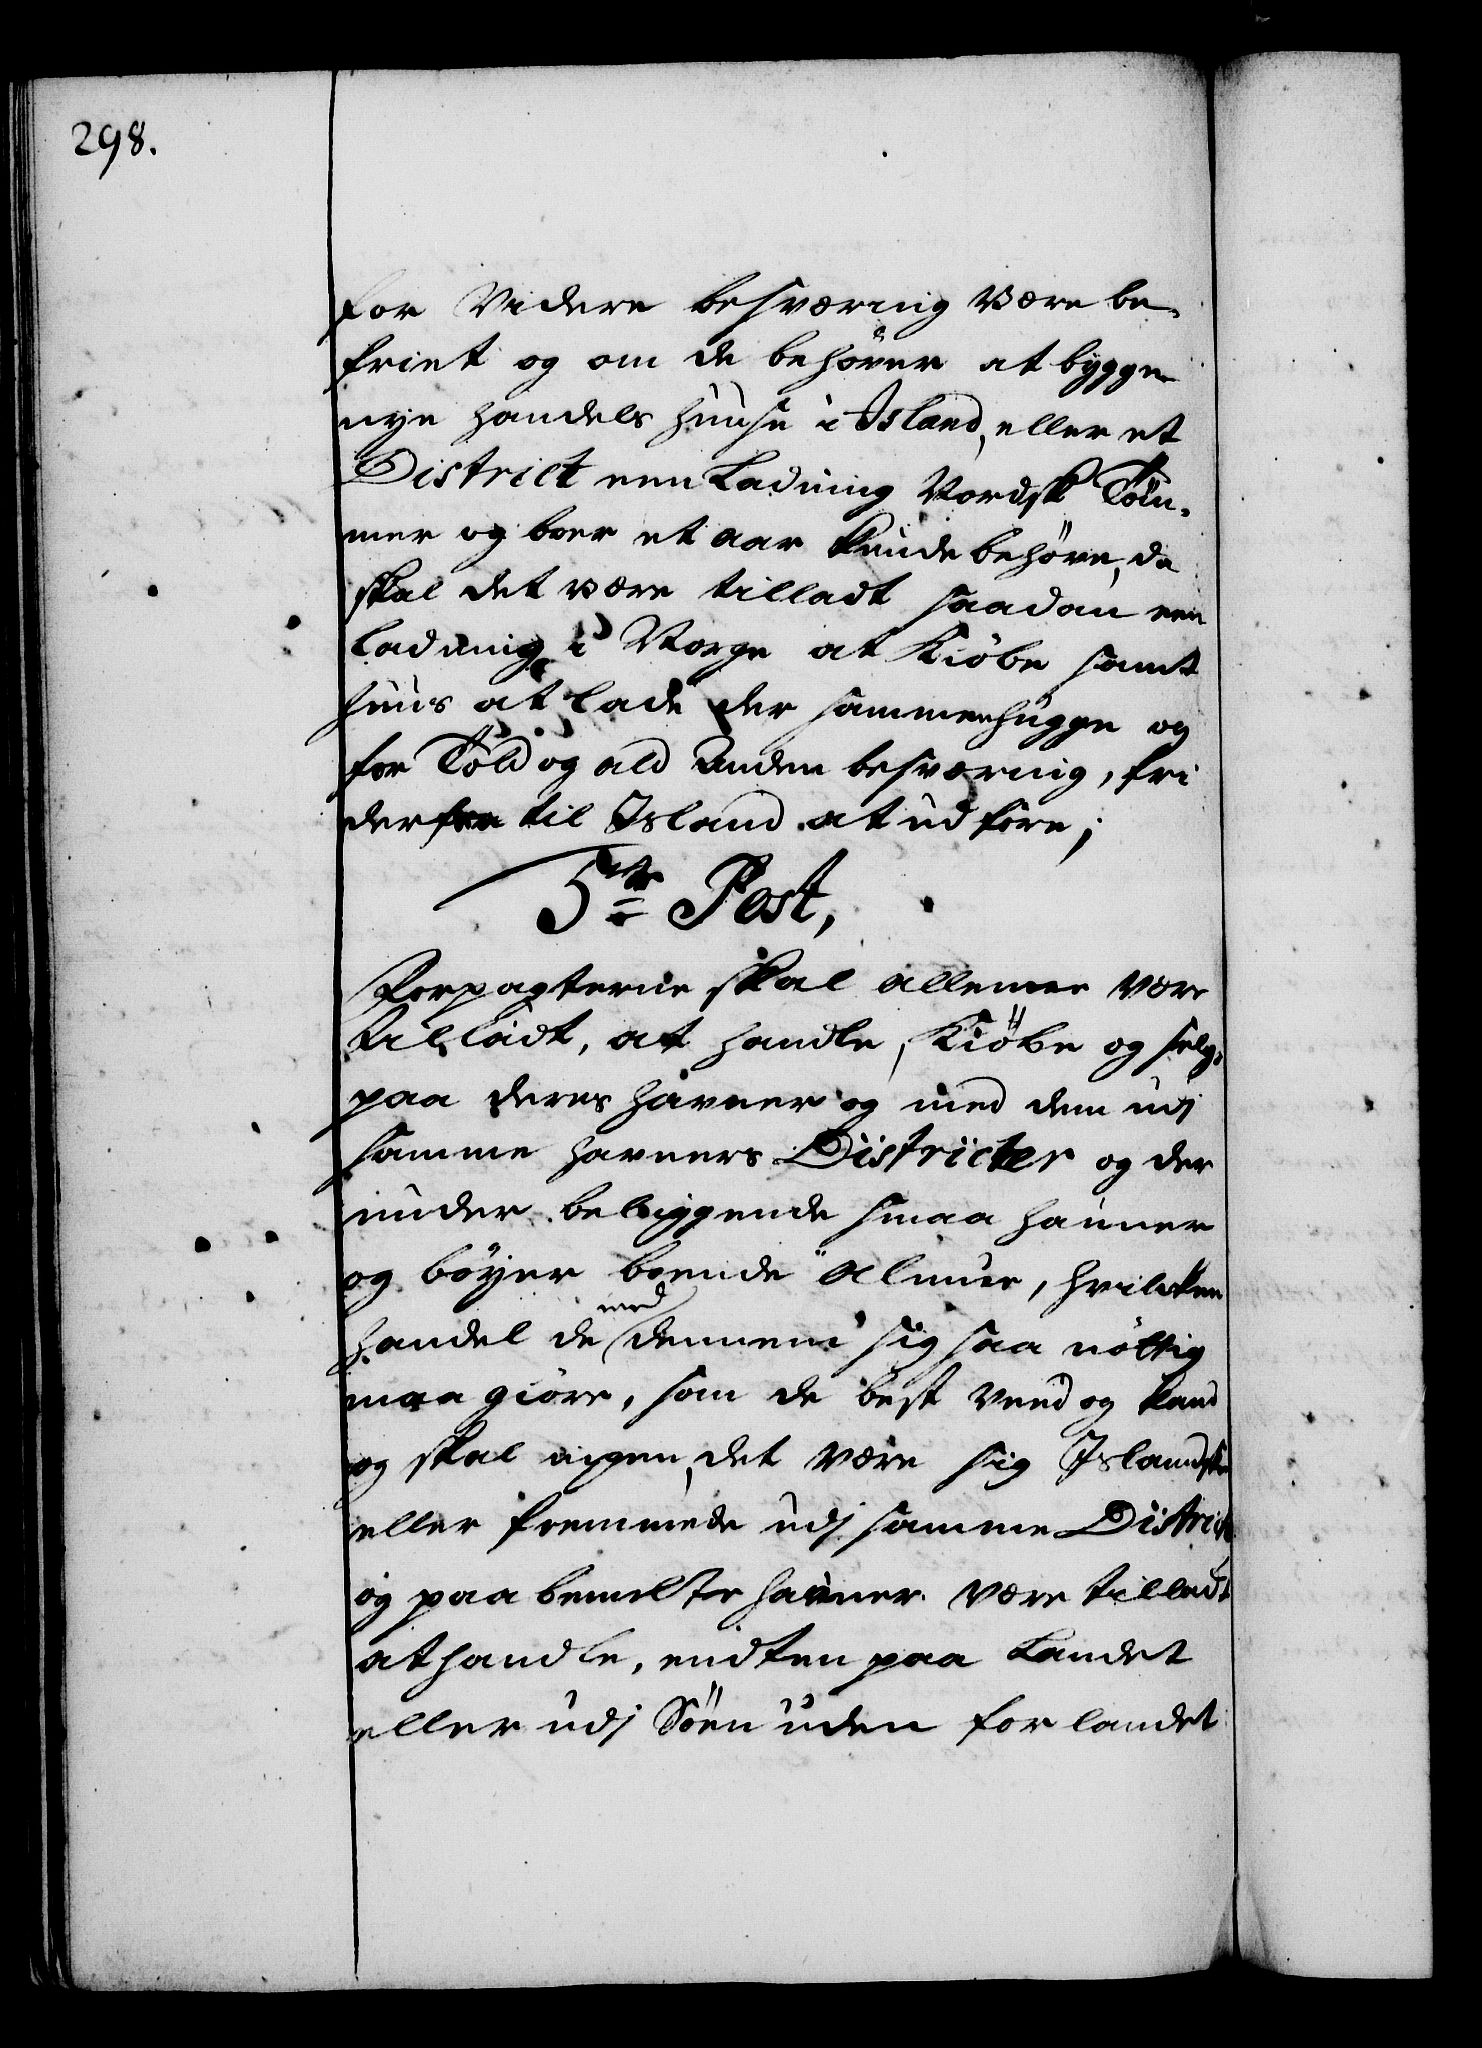 298.
for Videre besværing være be-
friet og om de behöver at bygge
nye handels huuse i Island, eller et
District een Ladning Nordsk Töm-
mer og boer et aar kunde behöve, da
skal det være tilladt saadan een
ladning i Norge at Kiöbe samt
huus at lade der sammenhugge og
for Told og ald Anden besværing, fri
derfra til Island at udföre;
5te Post,
Forpagterne skal alleene være
tilladt, at handle, Kiöbe og selge
paa deres havner og med dem udj
samme havners Districter og der
under beliggende smaa havner
og böyer boende Almue, hvilcken
handel de med dennem sig saa nöttig
maa giöre, som de best veed og kand
og skal ingen, det være sig Islandske
eller fremmede udj samme District
og paa bemelte havner være tilladt
at handle, endten paa Landet
eller udj Söen uden for landet